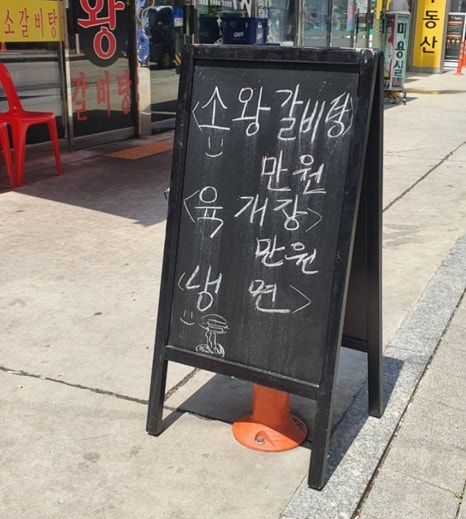 소갈비탕
왕
갈비탕
미용실
부동산
<소왕갈비탕>
만원
<육개장>
만원
<냉면>